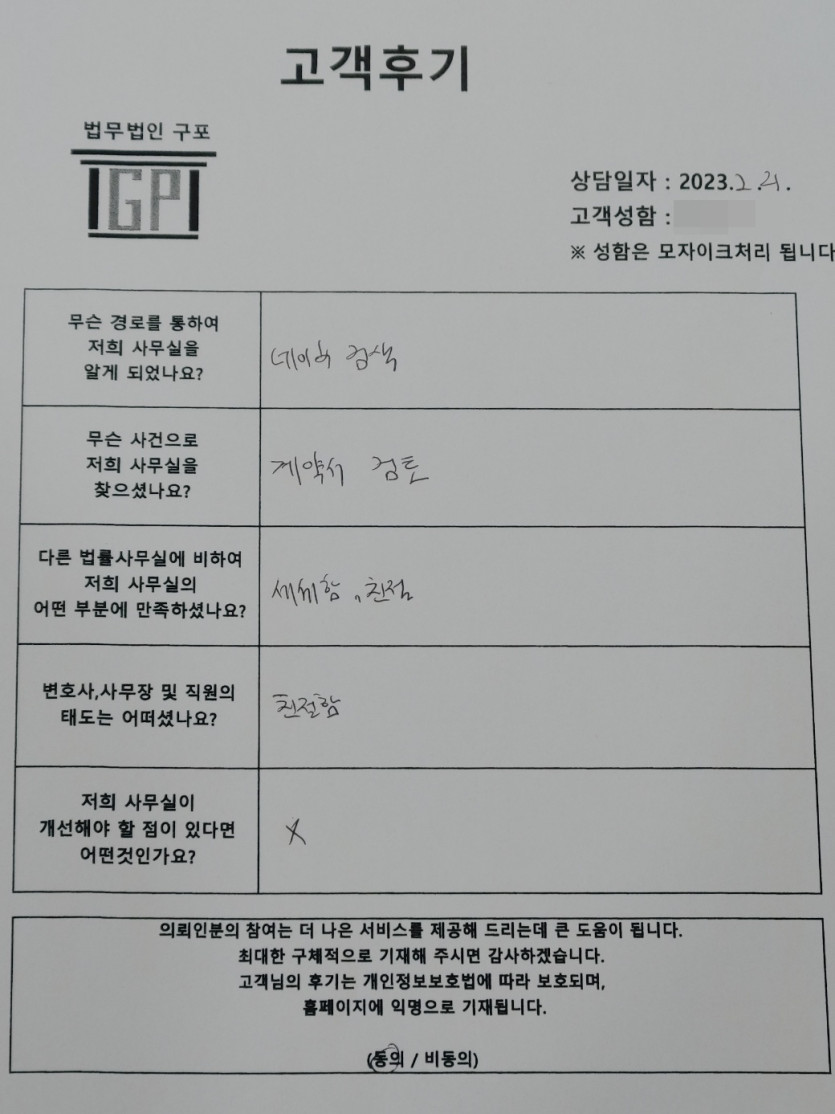 고객후기
법무법인 구포
IGPI
상담일자 : 2023.2.21.
고객성함 :
※ 성함은 모자이크처리 됩니다
무슨 경로를 통하여
저희 사무실을
알게 되었나요?
네이버 검색
무슨 사건으로
저희 사무실을
찾으셨나요?
계약서 검토
다른 법률사무실에 비하여
저희 사무실의
어떤 부분에 만족하셨나요?
세세함, 친절
변호사,사무장 및 직원의
태도는 어떠셨나요?
친절함
저희 사무실이
개선해야 할 점이 있다면
어떤것인가요?
X
의뢰인분의 참여는 더 나은 서비스를 제공해 드리는데 큰 도움이 됩니다.
최대한 구체적으로 기재해 주시면 감사하겠습니다.
고객님의 후기는 개인정보보호법에 따라 보호되며,
홈페이지에 익명으로 기재됩니다.
(동의 / 비동의)